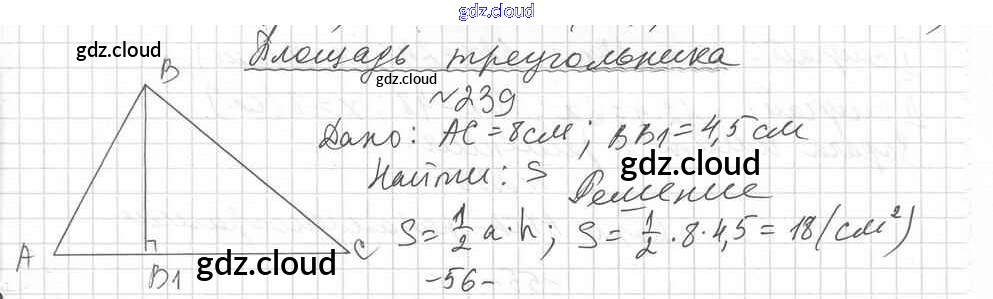 gdz.cloud
gdz.cloud
Площадь треугольника
gdz.cloud
№239
Дано: AC = 8см; BB1 = 4,5 см
gdz.cloud
Найти: S
Решение
S = 1/2 a·h; S = 1/2 ·8·4,5 = 18 (см²)
B
A
B1
C
gdz.cloud
-56-